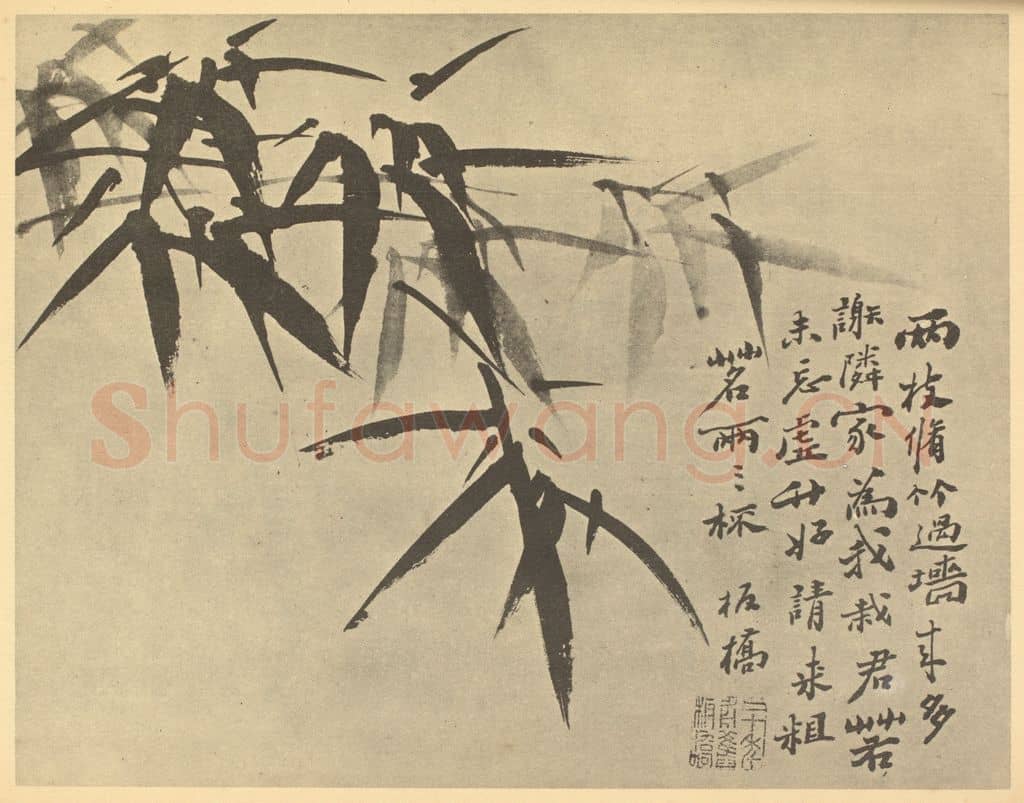 兩枝脩竹過墻来多
謝隣家為我栽君若
未忘虚竹好請来粗
茗兩三杯
板橋
Shufawang.CN